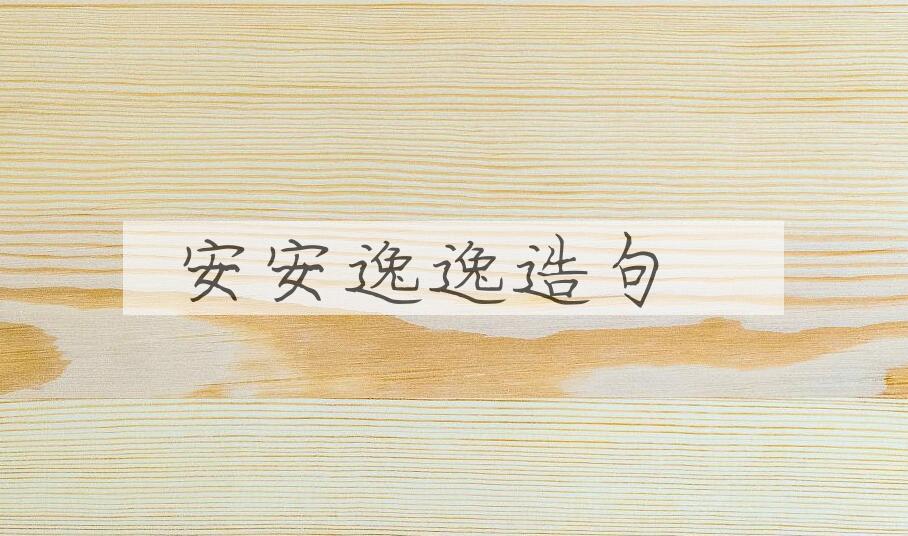 安安逸逸造句